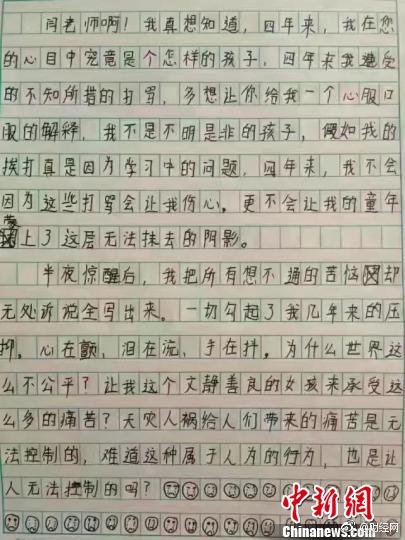 闫老师啊！我真想知道，四年来，我在您
的心目中究竟是个怎样的孩子，四年来我遭受
的不知所措的打骂，多想让你给我一个心服口
服的解释，我不是不明是非的孩子，假如我的
挨打真是因为学习中的问题，四年来，我不会
因为这些打骂会让我伤心。更不会让我的童年
蒙上了这层无法抹去的阴影。
半夜惊醒后，我把所有想不通的苦恼因却
无处诉说全写出来。一切勾起了我几年来的压
抑，心在颤，泪在流，手在抖。为什么世界这
么不公平？让我这个文静善良的女孩来承受这
么多的痛苦？天灾人祸给人们带来的痛苦是无
法控制的，难道这种属于人为的行为，也是让
人无法控制的吗？
中新网
Chinanews.com
@财经网